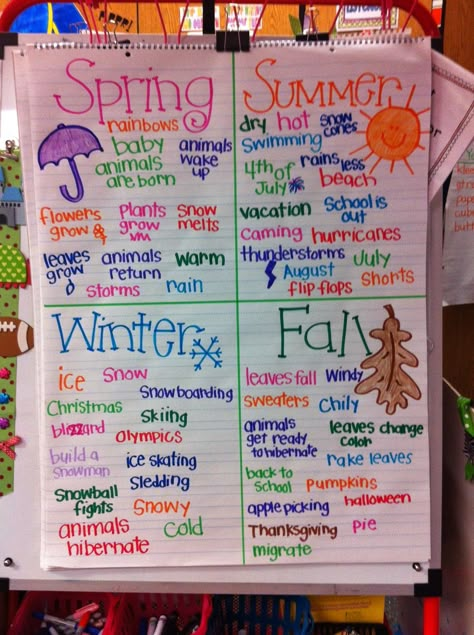 Spring
rainbows
baby
animals
are born
animals
wake
up
flowers
grow
plants
grow
snow
melts
leaves
grow
animals
return
warm
storms
rain
Summer
dry hot snow
cones
swimming
4th of
July
rains
less
beach
vacation
School is
out
caming hurricanes
thunderstorms July
August
flip flops
Shorts
Winter
ice
Snow
Snowboarding
Christmas
Skiing
blizzard
olympics
build a
snowman
ice skating
Sledding
Snowball
fights
Snowy
animals
hibernate
cold
Fall
leaves fall
Windy
sweaters
Chily
animals
get ready
to hibernate
leaves change
color
rake leaves
back to
School
pumpkins
apple picking
halloween
Thanksgiving
pie
migrate